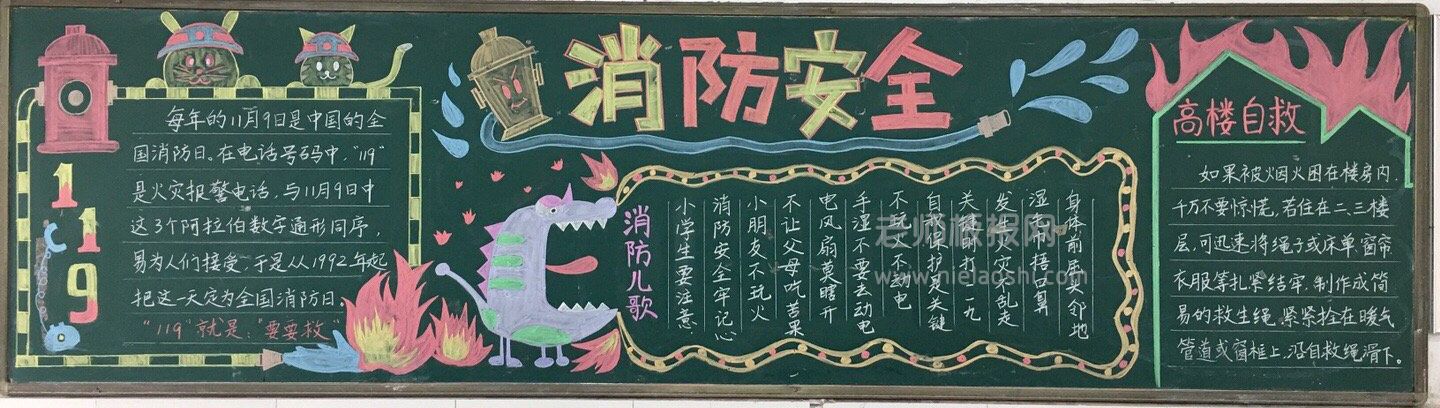 119
每年的11月9日是中国的全
国消防日。在电话号码中，"119"
是火灾报警电话，与11月9日中
这3个阿拉伯数字通形同序，
易为人们接受，于是从1992年起
把这一天定为全国消防日。
"119"就是："要要救"
消防安全
消防儿歌
小学生要注意
消防安全牢记心
小朋友不玩火
不让父母吃苦果
电风扇莫瞎开
手湿不要去动电
不玩火不动电
自我保护是关键
关键时打一一九
发生火灾不乱走
湿毛巾捂口鼻
身体前屈邻地
老师板报网
www.nielaoshi.com
高楼自救
如果被烟火困在楼房内，
千万不要惊慌，若住在二三楼
层，可迅速将绳子或床单窗帘
衣服等扎紧结牢，制作成简
易的救生绳，紧紧拴在暖气
管道或窗框上，沿自救绳滑下。